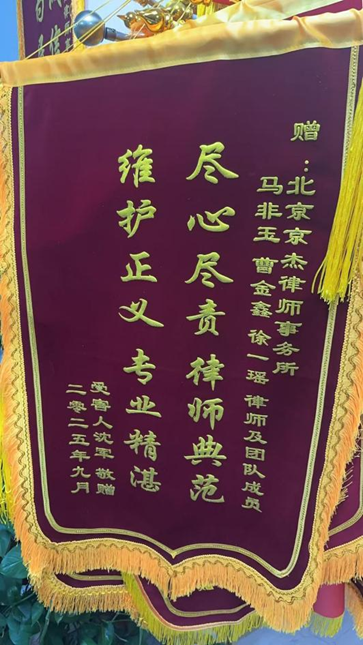 赠：北京京杰律师事务所
马非玉 曹金鑫 徐一瑶 律师及团队成员
尽心尽责 律师典范
维护正义 专业精湛
受害人沈军 敬赠
二零二五年九月